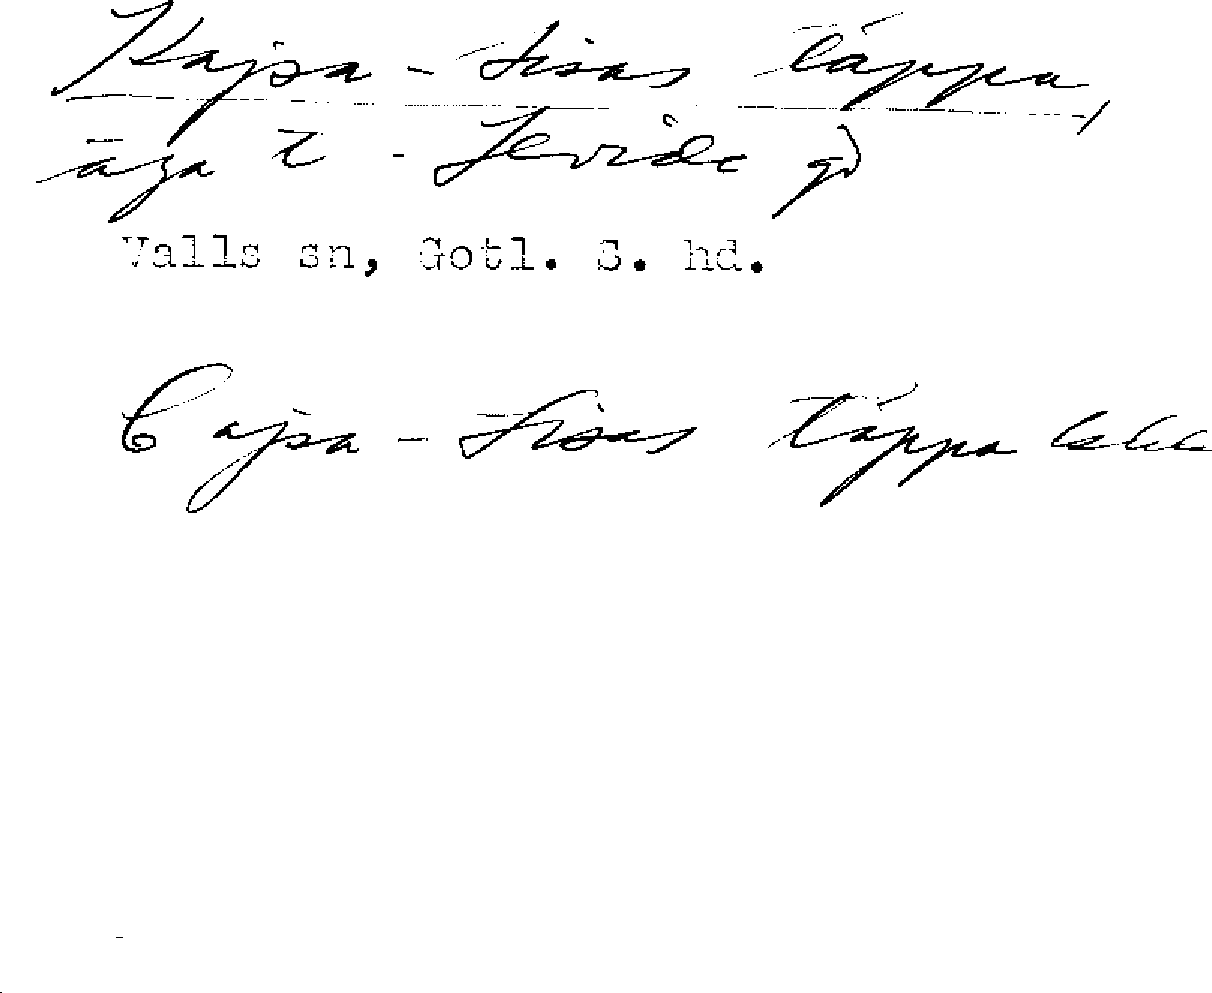 Kajsa-Lisas täppa,
äga t. Levide gd
Valls sn, Gotl. S. hd.
Cajsa-Lisas täppa